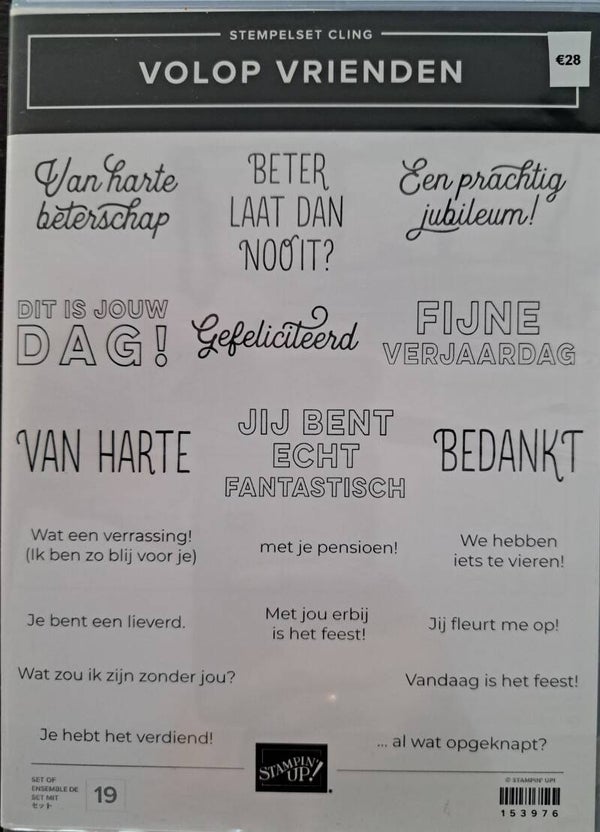 STEMPELSET CLING
VOLOP VRIENDEN
€28
Van harte
beterschap
BETER
LAAT DAN
NOOIT?
Een prachtig
jubileum!
DIT IS JOUW
DAG!
Gefeliciteerd
FIJNE
VERJAARDAG
VAN HARTE
JIJ BENT
ECHT
FANTASTISCH
BEDANKT
Wat een verrassing!
(Ik ben zo blij voor je)
met je pensioen!
We hebben
iets te vieren!
Je bent een lieverd.
Met jou erbij
is het feest!
Jij fleurt me op!
Wat zou ik zijn zonder jou?
Vandaag is het feest!
Je hebt het verdiend!
... al wat opgeknapt?
SET OF
ENSEMBLE DE
SET MIT
セット
19
STAMPIN' UP!
© STAMPIN' UP!
153976